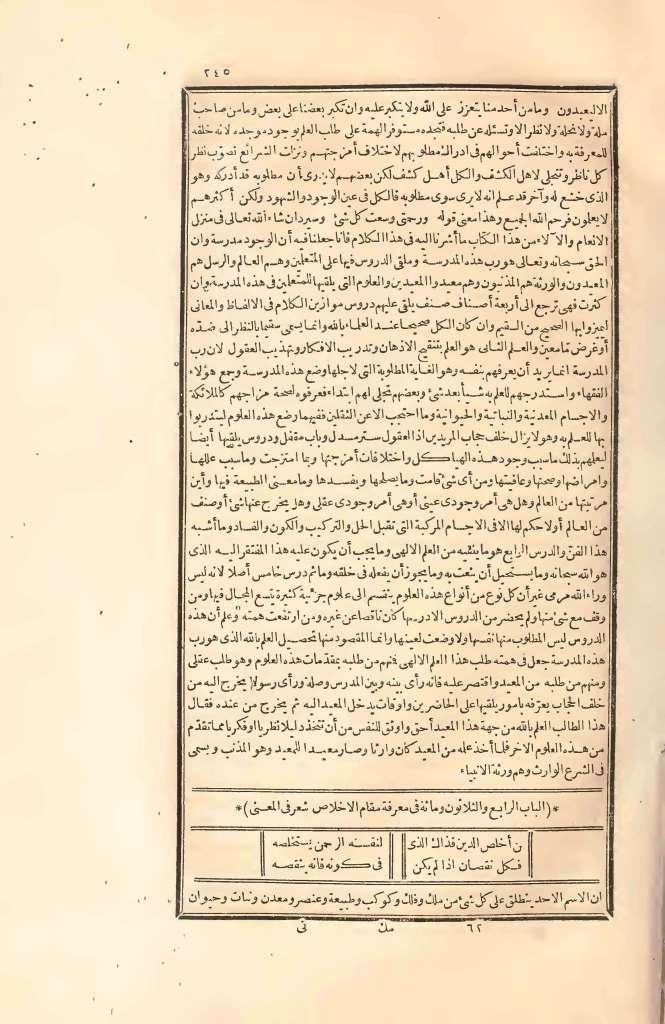 ٢٤٥
الا ليعبدون وما من أحد منا يتعزز على الله ولا يتكبر عليه وان تكبر بعضنا على بعض وما من صاحب
ملة ولا نحلة ولا نظر الا وتسئله عن طلبه فتجده مستوفر الهمة على طلب العلم بوجود موجده لانه خلقه
للمعرفة به واختلفت أحوالهم في ادراك مطلوبهم لاختلاف أمزجتهم ونزلت الشرائع تصوّب نظر
كل ناظر وتتجلى لاهل الكشف والكل أهل كشف لكن بعضهم لا يدرى أن مطلوبه قد أدركه وهو
الذى خشع له وآخر قد علم انه لا يرى سوى مطلوبه فالكل فى عين الوجود والشهود ولكن أكثرهم
لا يعلمون فرحم الله الجميع وهذا معنى قوله ورحمتى وسعت كل شئ وسيرد ان شاء الله تعالى فى منزل
الانعام والآلاء من هذا الكتاب ما أشرنا اليه فى هذا الكلام فاناجعلنا فيه أن الوجود مدرسة وان
الحق سبحانه وتعالى هو رب هذه المدرسة وملقى الدروس فيها على المتعلمين وهم العالم والرسل هم
المعيدون والورثة هم المذنبون وهم معيدوا المعيدين والعلوم التى يلقيها للمتعلمين فى هذه المدرسة وان
كثرت فهى ترجع الى أربعة أصناف صنف يلقى عليهم دروس موازين الكلام فى الالفاظ والمعانى
ليميزوا بها الصحيح من السقيم وان كان الكل صحيحا عند العلماء بالله وانما يسمى سقيما بالنظر الى ضده
أو غرض ما معين والعلم الثانى هو العلم بتنقيح الاذهان وتدريب الافكار وتهذيب العقول لان رب
المدرسة انما يريد أن يعرفهم بنفسه وهو الغاية المطلوبة التى لاجلها وضع هذه المدرسة وجمع هؤلاء
الفقهاء واستدرجهم للعلم به شيأ بعد شئ وبعضهم تجلى لهم ابتداء فعرفوه لصحة مزاجهم كالملائكة
والاجسام المعدنية والنباتية والحيوانية وما احتجب الا عن الثقلين ففيهما وضع هذه العلوم ليتدربوا
بها للعلم به وهو لا يزال خلف حجاب المريدين اذ العقول ستر مسدل وباب مقفل ودروس يلقيها أيضا
ليعلمهم بذلك ما سبب وجود هذه الهياكل واختلافات أمزجتها وبما امتزجت وما سبب عللها
وامراضها وصحتها وعافيتها ومن أى شئ قامت وما يصلحها ويفسدها وما معنى الطبيعة فيها وأين
مرتبتها من العالم وهل هى أمر وجودى عينى أو هى أمر وجودى عقلى وهل يخرج عنها شئ أو صنف
من العالم أولا حكم لها الا فى الاجسام المركبة التى تقبل الحل والتركيب والكون والفساد وما أشبه
هذا الفن والدرس الرابع هو ما يلقيه من العلم الالهى وما يجب أن يكون عليه هذا المفتقر اليه الذى
هو الله سبحانه وما يستحيل أن ينعت به وما يجوز أن يفعله فى خلقه وما ثم درس خامس أصلا لانه ليس
وراء الله مرمى غير أن كل نوع من أنواع هذه العلوم ينقسم الى علوم جزئية كثيرة يتسع المجال فيها ومن
وقف مع شئ منها ولم يحضر من الدروس الا درسها كان ناقصا عن غيره ومن ارتفعت همته وعلم أن هذه
الدروس ليس المطلوب منها نفسها ولا وضعت لعينها وانما المقصود منها تحصيل العلم بالله الذى هو رب
هذه المدرسة جعل فى همته طلب هذا العلم الالهى فمنهم من طلبه بمقدمات هذه العلوم وهو طلب عقلى
ومنهم من طلبه من المعيد واقتصر عليه فانه رأى بينه وبين المدرس وصلة ورأى رسولا يخرج اليه من
خلف الحجاب يعرّفه بأمور يلقيها على الحاضرين واوقات يدخل المعيد اليه ثم يخرج من عنده فقال
هذا الطالب العلم بالله من جهة هذا المعيد أحق واوثق للنفس من أن نتخذ دليلا نظريا أو فكريا مما تقدم
من هذه العلوم الاخر فلما أخذ علمه من المعيد كان وارثا وصار معيدا للمعيد وهو المذنب ويسمى
فى الشرع الوارث وهم ورثة الانبياء
*(الباب الرابع والثلاثون ومائة فى معرفة مقام الاخلاص شعر فى المعنى)*
من أخلص الدين فذاك الذى لنفسه الرحمن يستخلصه
فكل نقصان اذا لم يكن فى كونه فانه ينقصه
ان الاسم الاحد ينطلق على كل شئ من ملك وفلك وكوكب وطبيعة وعنصر ومعدن ونبات وحيوان
٦٢ مك نى